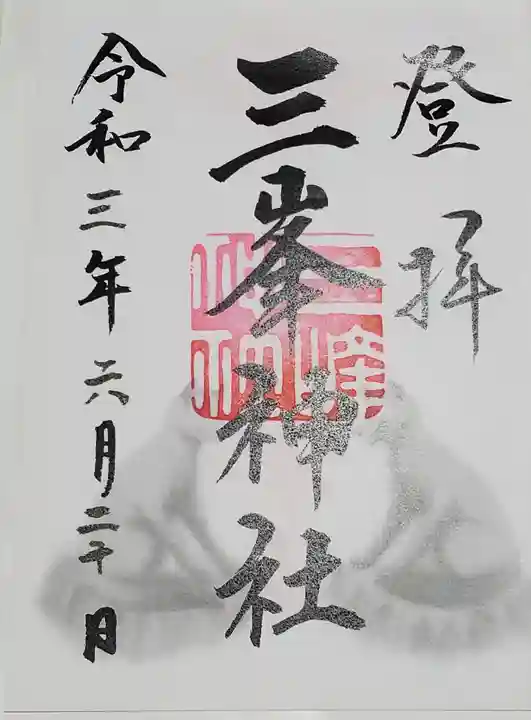 登拝
三峯神社
令和三年六月二十日